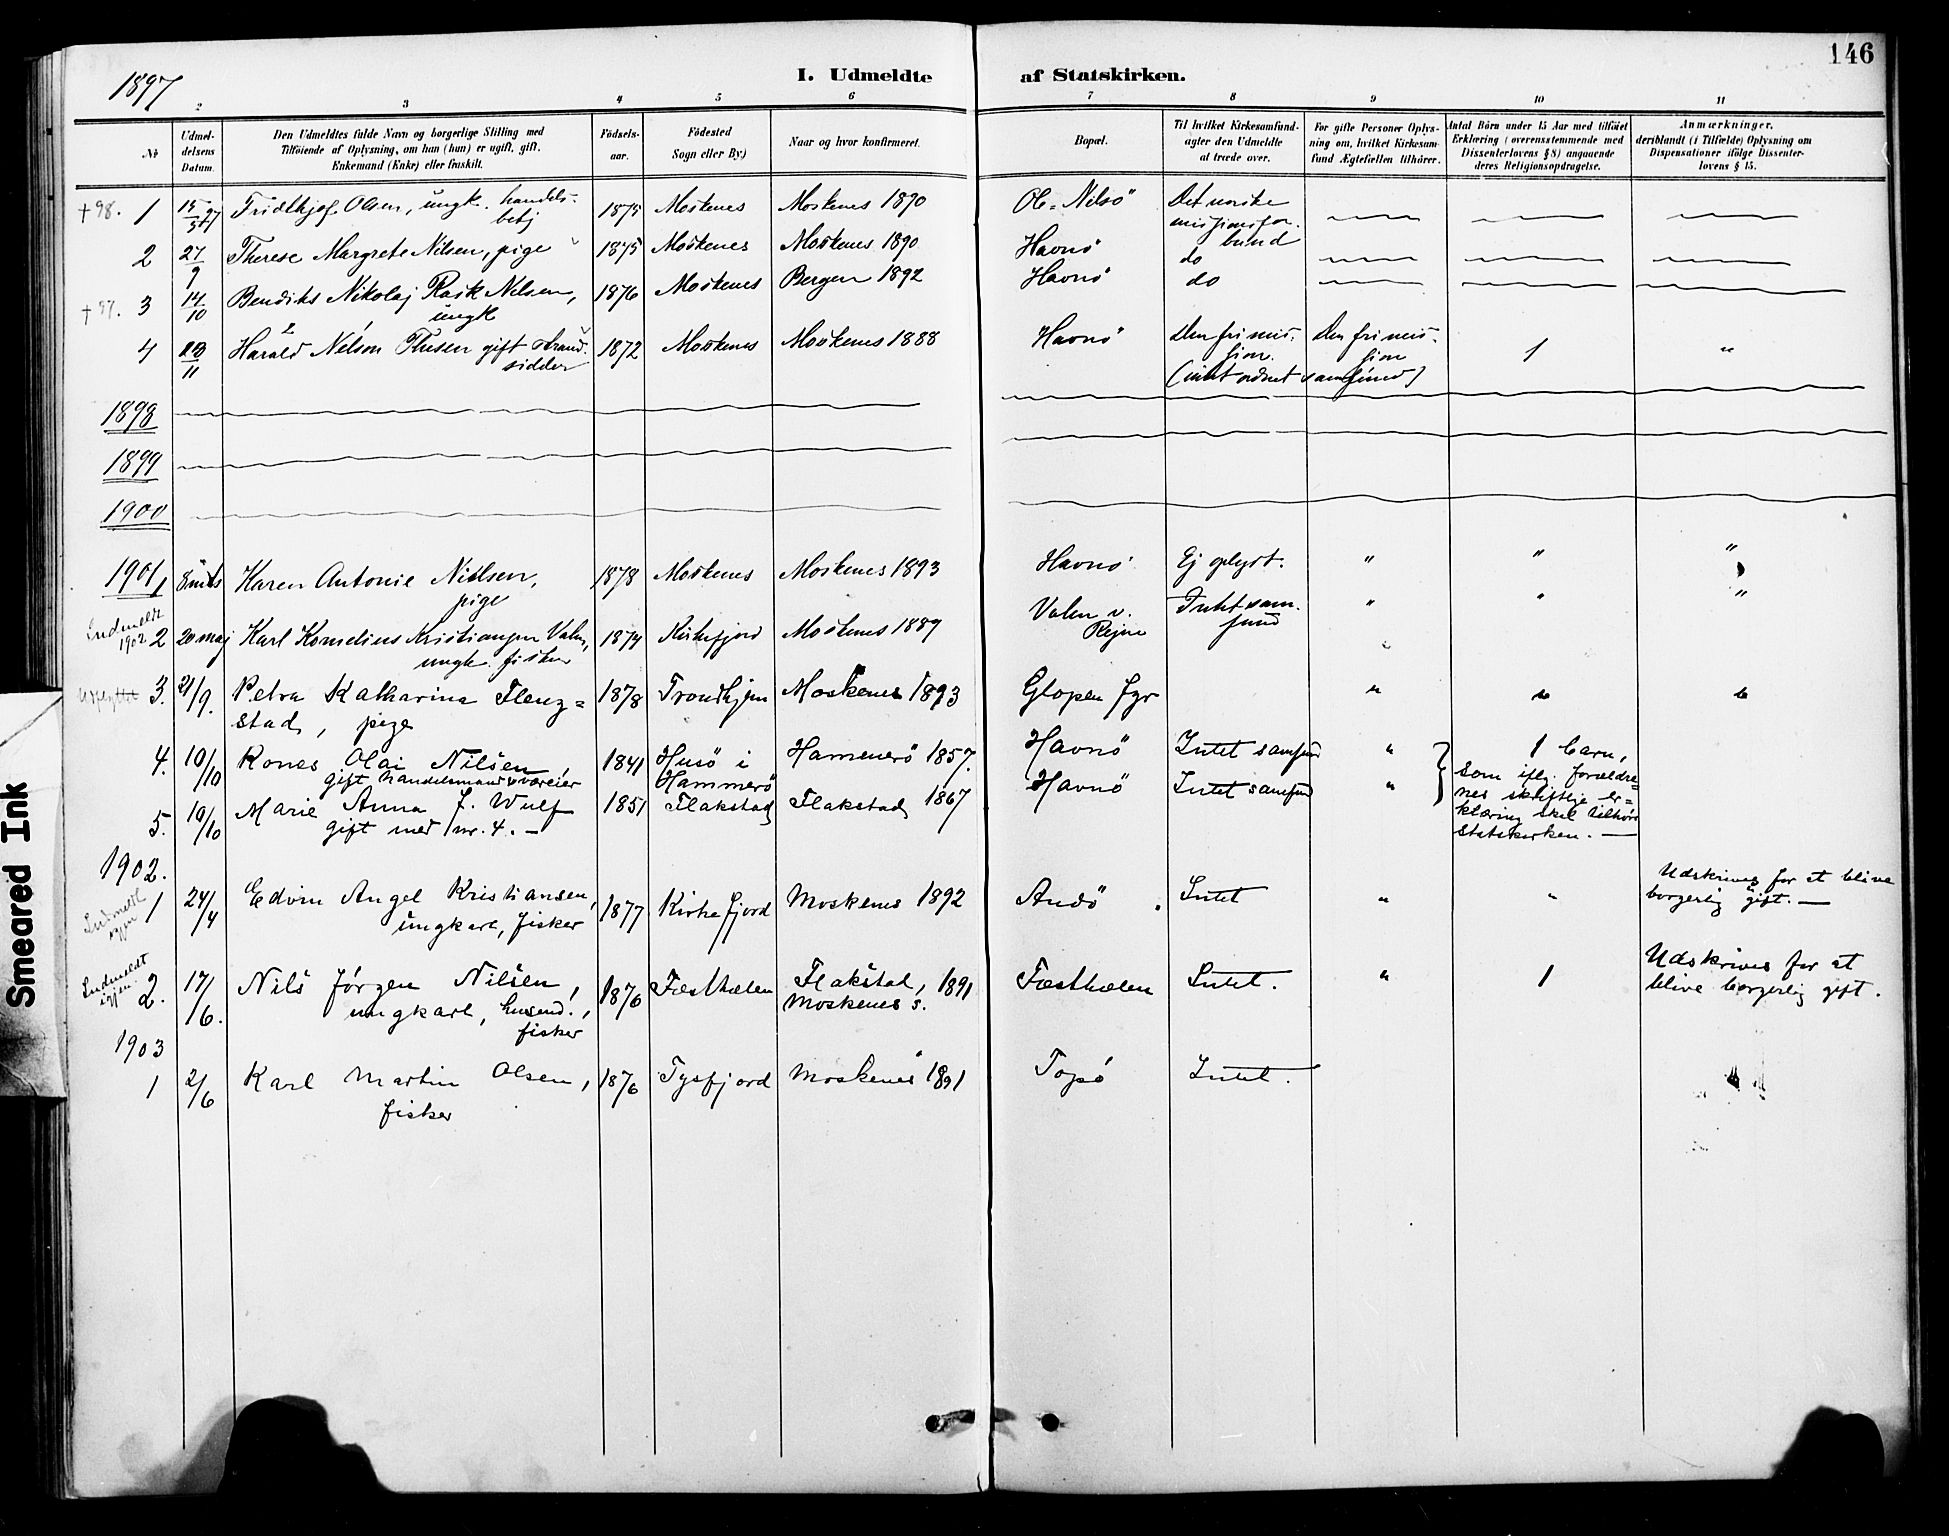 146
1897
I. Udmeldte af Statskirken.
2 3 4 5 6 7 8 9 10 11
No
Udmel-
delsens
Datum.
Den Udmeldtes fulde Navn og borgerlige Stilling med
Tilföiende af Oplysning, om han (hun) er ugift, gift,
Enkemand (Enke) eller fraskilt.
Födsels-
aar.
Födested
Sogn eller By.)
Naar og hvor konfirmeret.
Bopæl.
Til hvilket Kirkesamfund-
agter den Udmeldte
at træde over.
For gifte Personer Oplys-
ning om, hvilket Kirkesam-
fund Ægtefællen tilhörer.
Antal Börn under 15 Aar med tilföiet
Erklæring (overensstemmende med
Dissenterlovens § 8) angaaende
deres Religionsopdragelse.
Anmærkninger,
deriblandt (i Tilfælde) Oplysning om
Dispensationer ifölge Dissenter-
lovens § 15.
+98. 1 15/3 97 Fridthjof Olsen, ungk. handels- 1875 Moskenes Moskenes 1890 Ole-Nilsö Det norske
betj missionsfor.
bund
2 27/9 Therese Margrete Nilsen, pige 1875 Moskenes Moskenes 1890 Havnö do
+97. 3 14/10 Bendiks Nikolaj Rask Nilsen, 1876 Moskenes Bergen 1892 Havnö do
ungk
4 23/11 Harald Nelson Thisen gift strand- 1872 Moskenes Moskenes 1888 Havnö Den fri mis- Den fri mis- 1 "
sidder sion. sion
(intet ordnet samfund)
1898
1899
1900
1901 1 8 mts Karen Antonie Nielsen, 1878 Moskenes Moskenes 1893 Havnö Ej oplyst. " " "
pige
Indmeldt
1902 2 20 maj Karl Kornelius Kristiansen Valen, 1874 Kirkefjord Moskenes 1889 Valen v. Intet sam- " " "
ungk. fisker Rejne fund
3. 21/9. Petra Katharina Flenz= 1878 Trondhjem Moskenes 1893 Glopen fyr " " "
stad, pige
4. 10/10 Rones Olai Nilsen, 1841 Husö i Hammerö 1857. Havnö Intet samfund " 1 barn,
gift handelsmand & væreier Hammerö som iflg. forældre=
5. 10/10 Marie Anna J. Wulf 1851 Flakstad Flakstad 1867 Havnö Intet samfund " nes skriftlige er=
gift med nr. 4. — klæring skal tilhöre
statskirken. —
1902.
Indmeldt
igjen 1 24/4 Edvin Angel Kristiansen, 1877 Kirkefjord Moskenes 1892 Andö Intet " " Udskrives for at blive
ungkarl, fisker borgerlig gift. —
Indmeldt
igjen. 2. 17/6. Nils Jörgen Nilsen, 1876 Festhælen Flakstad, 1891 Festhælen Intet. " 1 Udskrives for at
ungkarl, husmd., Moskenes s. blive borgerlig gift.
fisker
1903
1 2/6 Karl Martin Olsen, 1876 Tysfjord Moskenes 1891 Topö Intet.
fisker
Smeared Ink